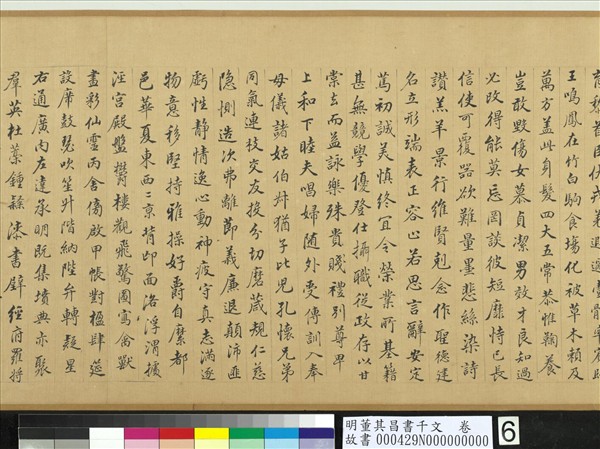 王鳴鳳在竹白駒食場化被草木賴及
萬方蓋此身髮四大五常恭惟鞠養
豈敢毀傷女慕貞潔男效才良知過
必改得能莫忘罔談彼短靡恃己長
信使可覆器欲難量墨悲絲染詩
讚羔羊景行維賢剋念作聖德建
名立形端表正容止若思言辭安定
篤初誠美慎終宜令榮業所基籍
甚無競學優登仕攝職從政存以甘
棠去而益詠樂殊貴賤禮別尊卑
上和下睦夫唱婦隨外受傅訓入奉
母儀諸姑伯叔猶子比兒孔懷兄弟
同氣連枝交友投分切磨箴規仁慈
隱惻造次弗離節義廉退顛沛匪
虧性靜情逸心動神疲守真志滿逐
物意移堅持雅操好爵自縻都
邑華夏東西二京背邙面洛浮渭據
涇宮殿盤鬱樓觀飛驚圖寫禽獸
畫彩仙靈丙舍傍啟甲帳對楹肆筵
設席鼓瑟吹笙升階納陛弁轉疑星
右通廣內左達承明既集墳典亦聚
羣英杜藁鍾隸漆書壁經府羅將
明董其昌書千文 卷
故書 000429N000000000
6